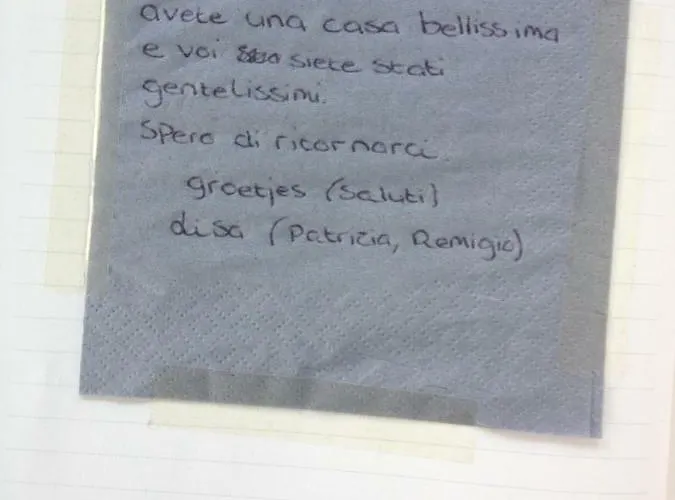 avete una casa bellissima
e voi siete stati
gentelissimi.
Spero di ritornarci.
groetjes (saluti)
disa (Patrizia, Remigio)